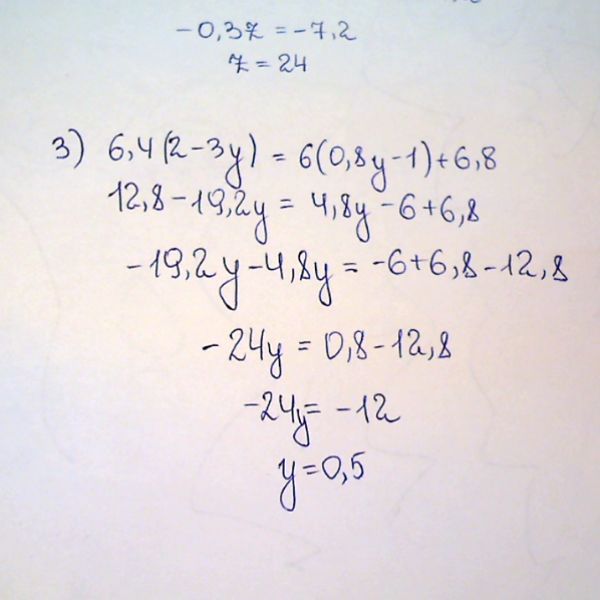 -0,3z = -7,2
z = 24
3) 6,4(2-3y) = 6(0,8y-1)+6,8
12,8-19,2y = 4,8y-6+6,8
-19,2y-4,8y = -6+6,8-12,8
-24y = 0,8-12,8
-24y = -12
y = 0,5